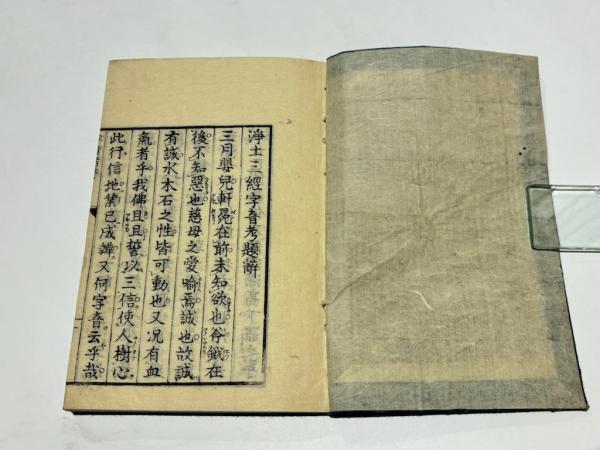 淨土三經字音考題辭
三月嬰兒軒冕在前未知欲也斧鉞在
後不知惡也慈母之愛喻焉誠也故誠
有誠水木石之性皆可動也又况有血
氣者乎我佛且且誓以三信使人樹心
此行信地葉已成辨又何字音云乎哉